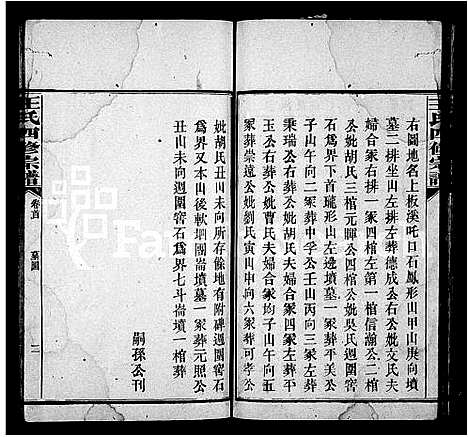 王氏四修宗譜
右圖地名上板溪吒口石鳳形山甲山庚向墳
墓二排坐山左排左葬德成公右公妣文氏夫
婦合冢右排一冢四棺左第一棺信瀚公二棺
公妣胡氏三棺元暉公四棺公妣吳氏週圍窖
石為界下首琉形山左邊墳墓一冢葬平美公
子山午向二冢葬中孚公壬山丙向三冢左葬
秉瑞公右葬公妣胡氏夫婦合冢四冢左葬
公右葬公妣曹氏夫婦合冢均子山午向五
冢葬崇遠公妣劉氏寅山申向六冢左葬可學公
妣胡氏丑山未向所存餘地有附碑週圍窖石
為界又本山後軟堋團崙墳墓一冢葬元照公
丑山未向週圍窖石為界七斗崙墳一棺葬
嗣孫公刊
王氏四修宗譜
卷首
墓圖
二